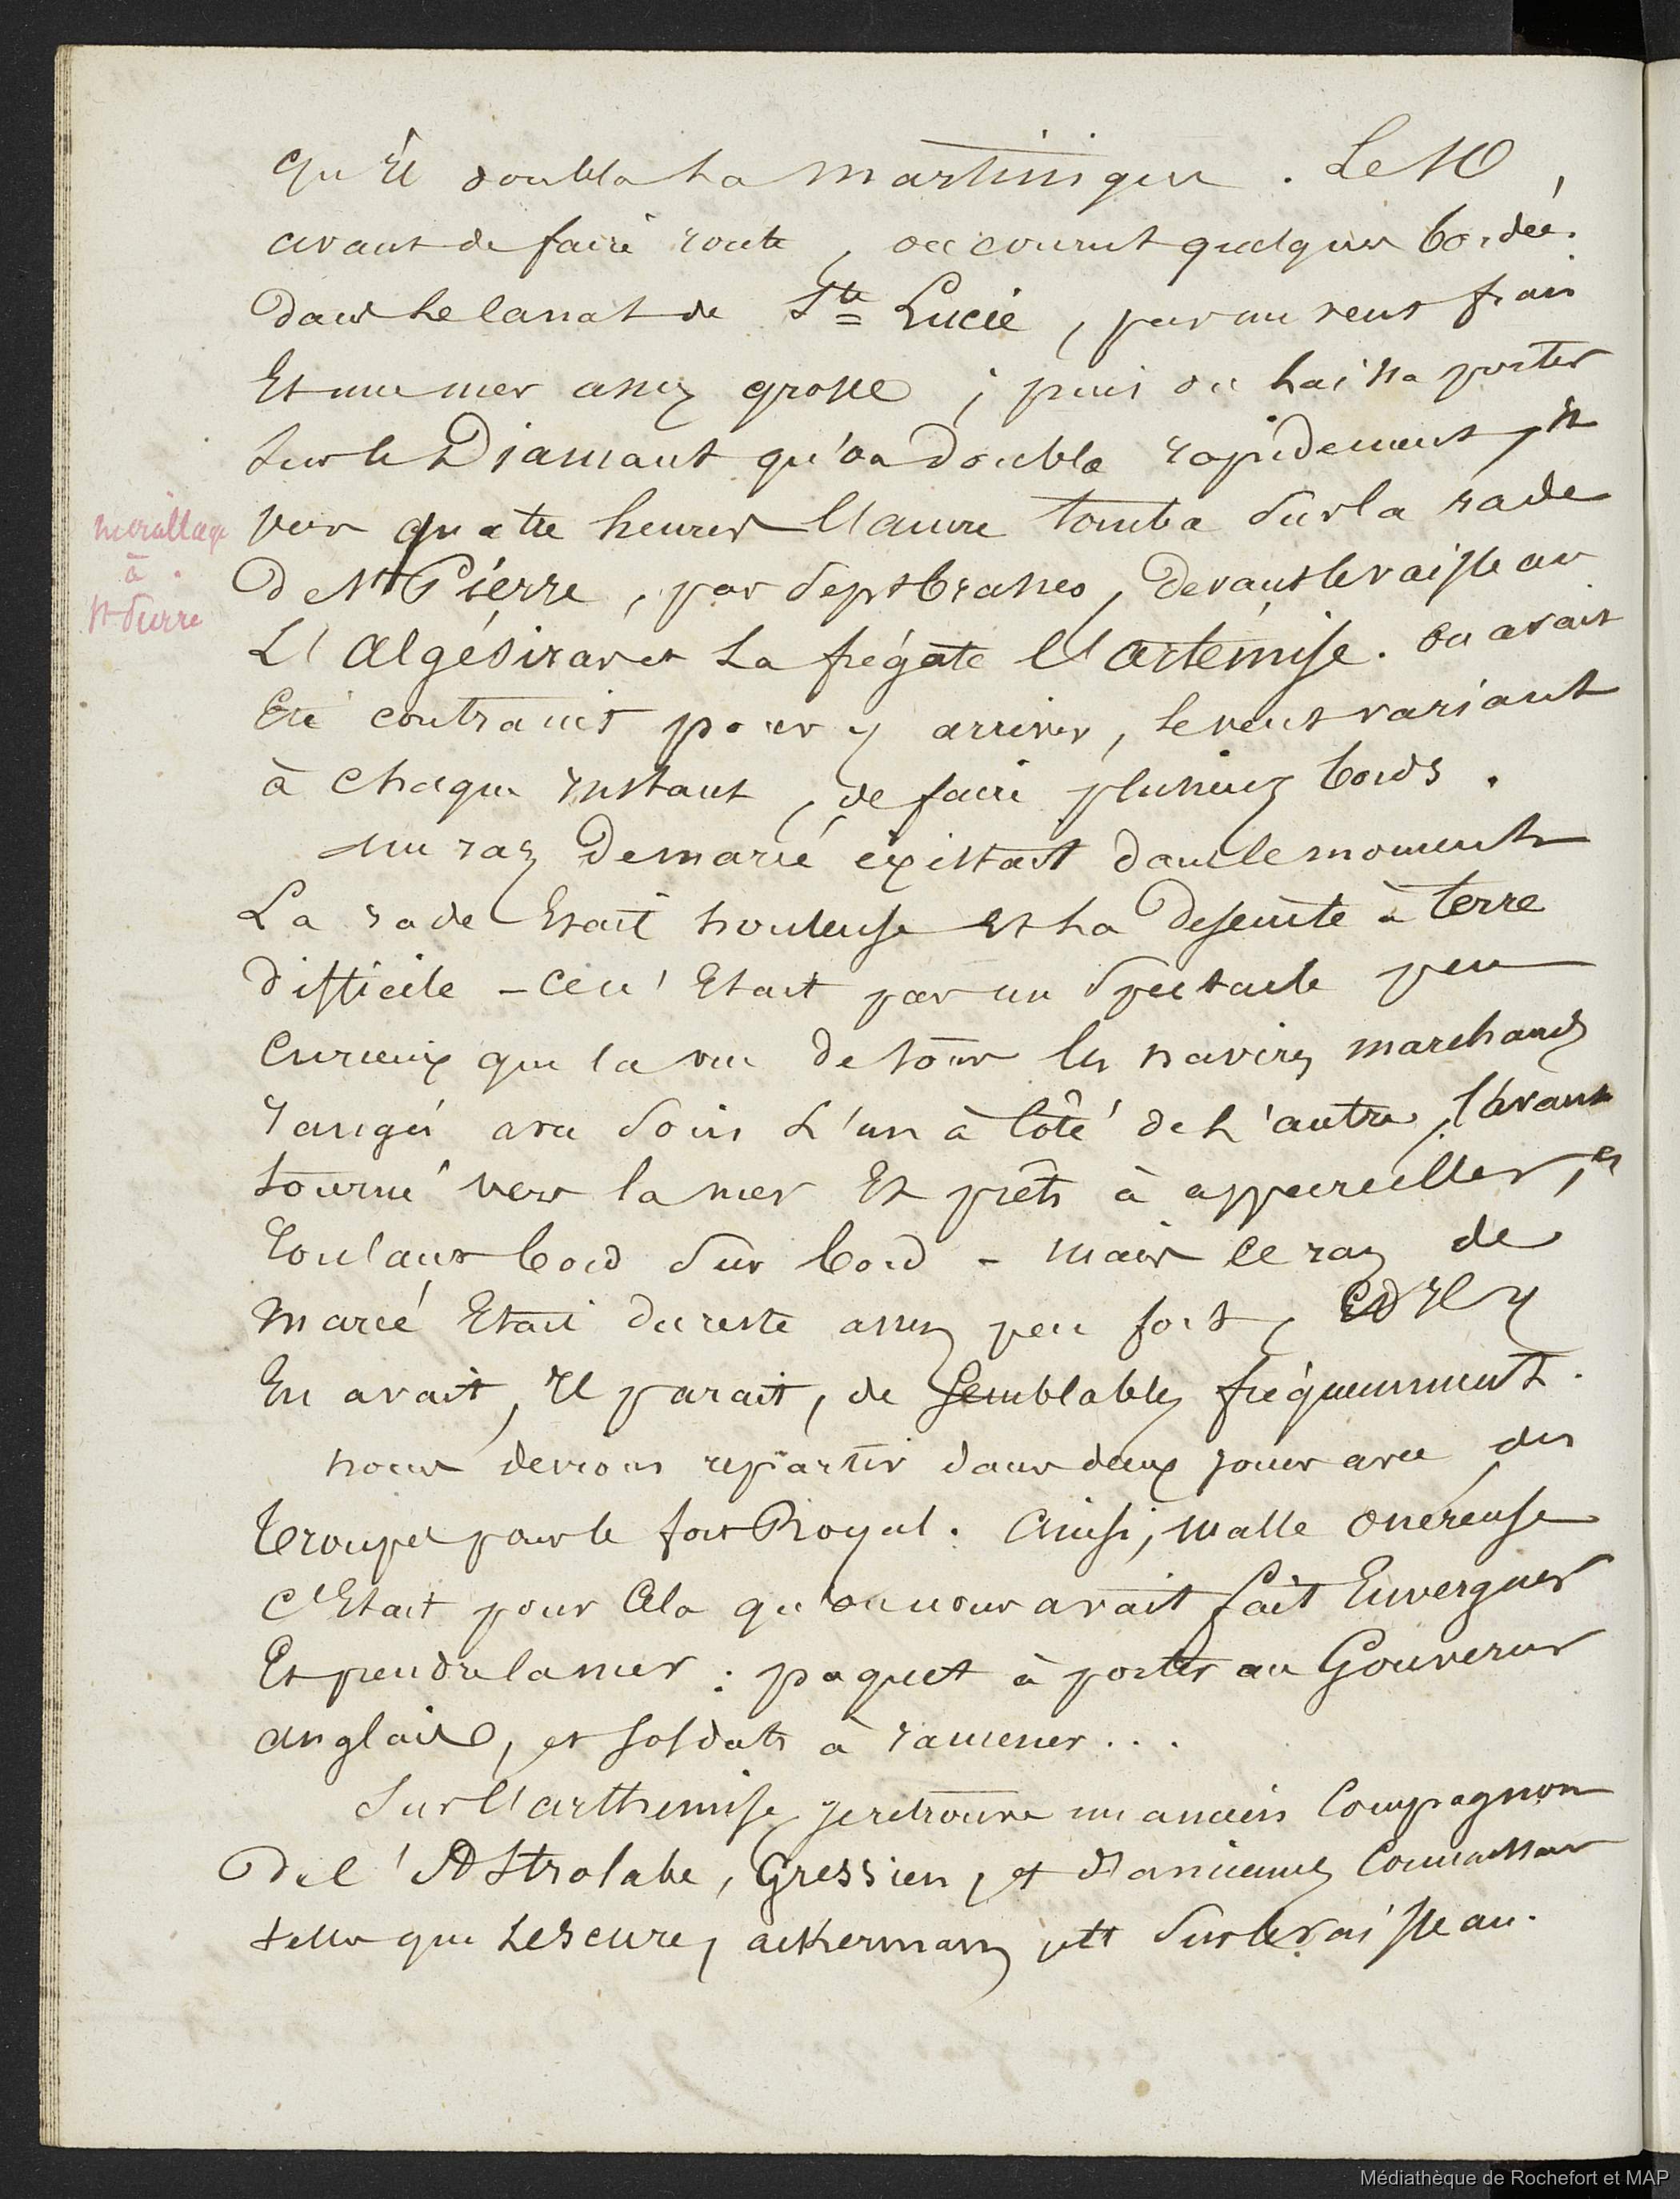 qu'il doubla la martinique. Le 10,
avant de faire route, on courut quelques bordées
dans le canal de Ste Lucie, par un vent frais
Et une mer assez grosse ; puis on laissa porter
sur le Diamant qu'on doubla rapidement, et
vers quatre heures l'ancre tomba sur la rade
De St Pierre, par sept brasses, devant le vaisseau
L'Algésiras et La frégate l'artémise. on avait
Eté contraint pour y arriver, le vent variant
à chaque instant, de faire plusieurs bords.
un raz De marée existait dans le moment
La rade Etait houleuse et la descente à terre
difficile - ce n'Etait pas un spectacle peu
Curieux que la vue de tous les navires marchands
rangés avec soin L'un à côté de L'autre, l'avant
tourné vers la mer Et prêts à appareiller, et
roulant bord sur bord - mais ce raz de
marée Etait du reste assez peu fort, Et Il y
En avait, Il parait, de semblables fréquemment.
nous devions repartir dans deux jours avec des
troupes pour le fort Royal. Ainsi, malle onéreuse
C'Etait pour cela qu'on nous avait fait Enverguer
Et prendre la mer : paquet à porter au Gouverneur
anglais, et soldats à ramener...
Sur l'arthémise, je retrouve un ancien Compagnon
De l'Astrolabe, Gressien, et d'anciennes Connaissances
telles que Lescure, ackerman, etc sur le vaisseau.
mouillage
à
St Pierre
Médiathèque de Rochefort et MAP